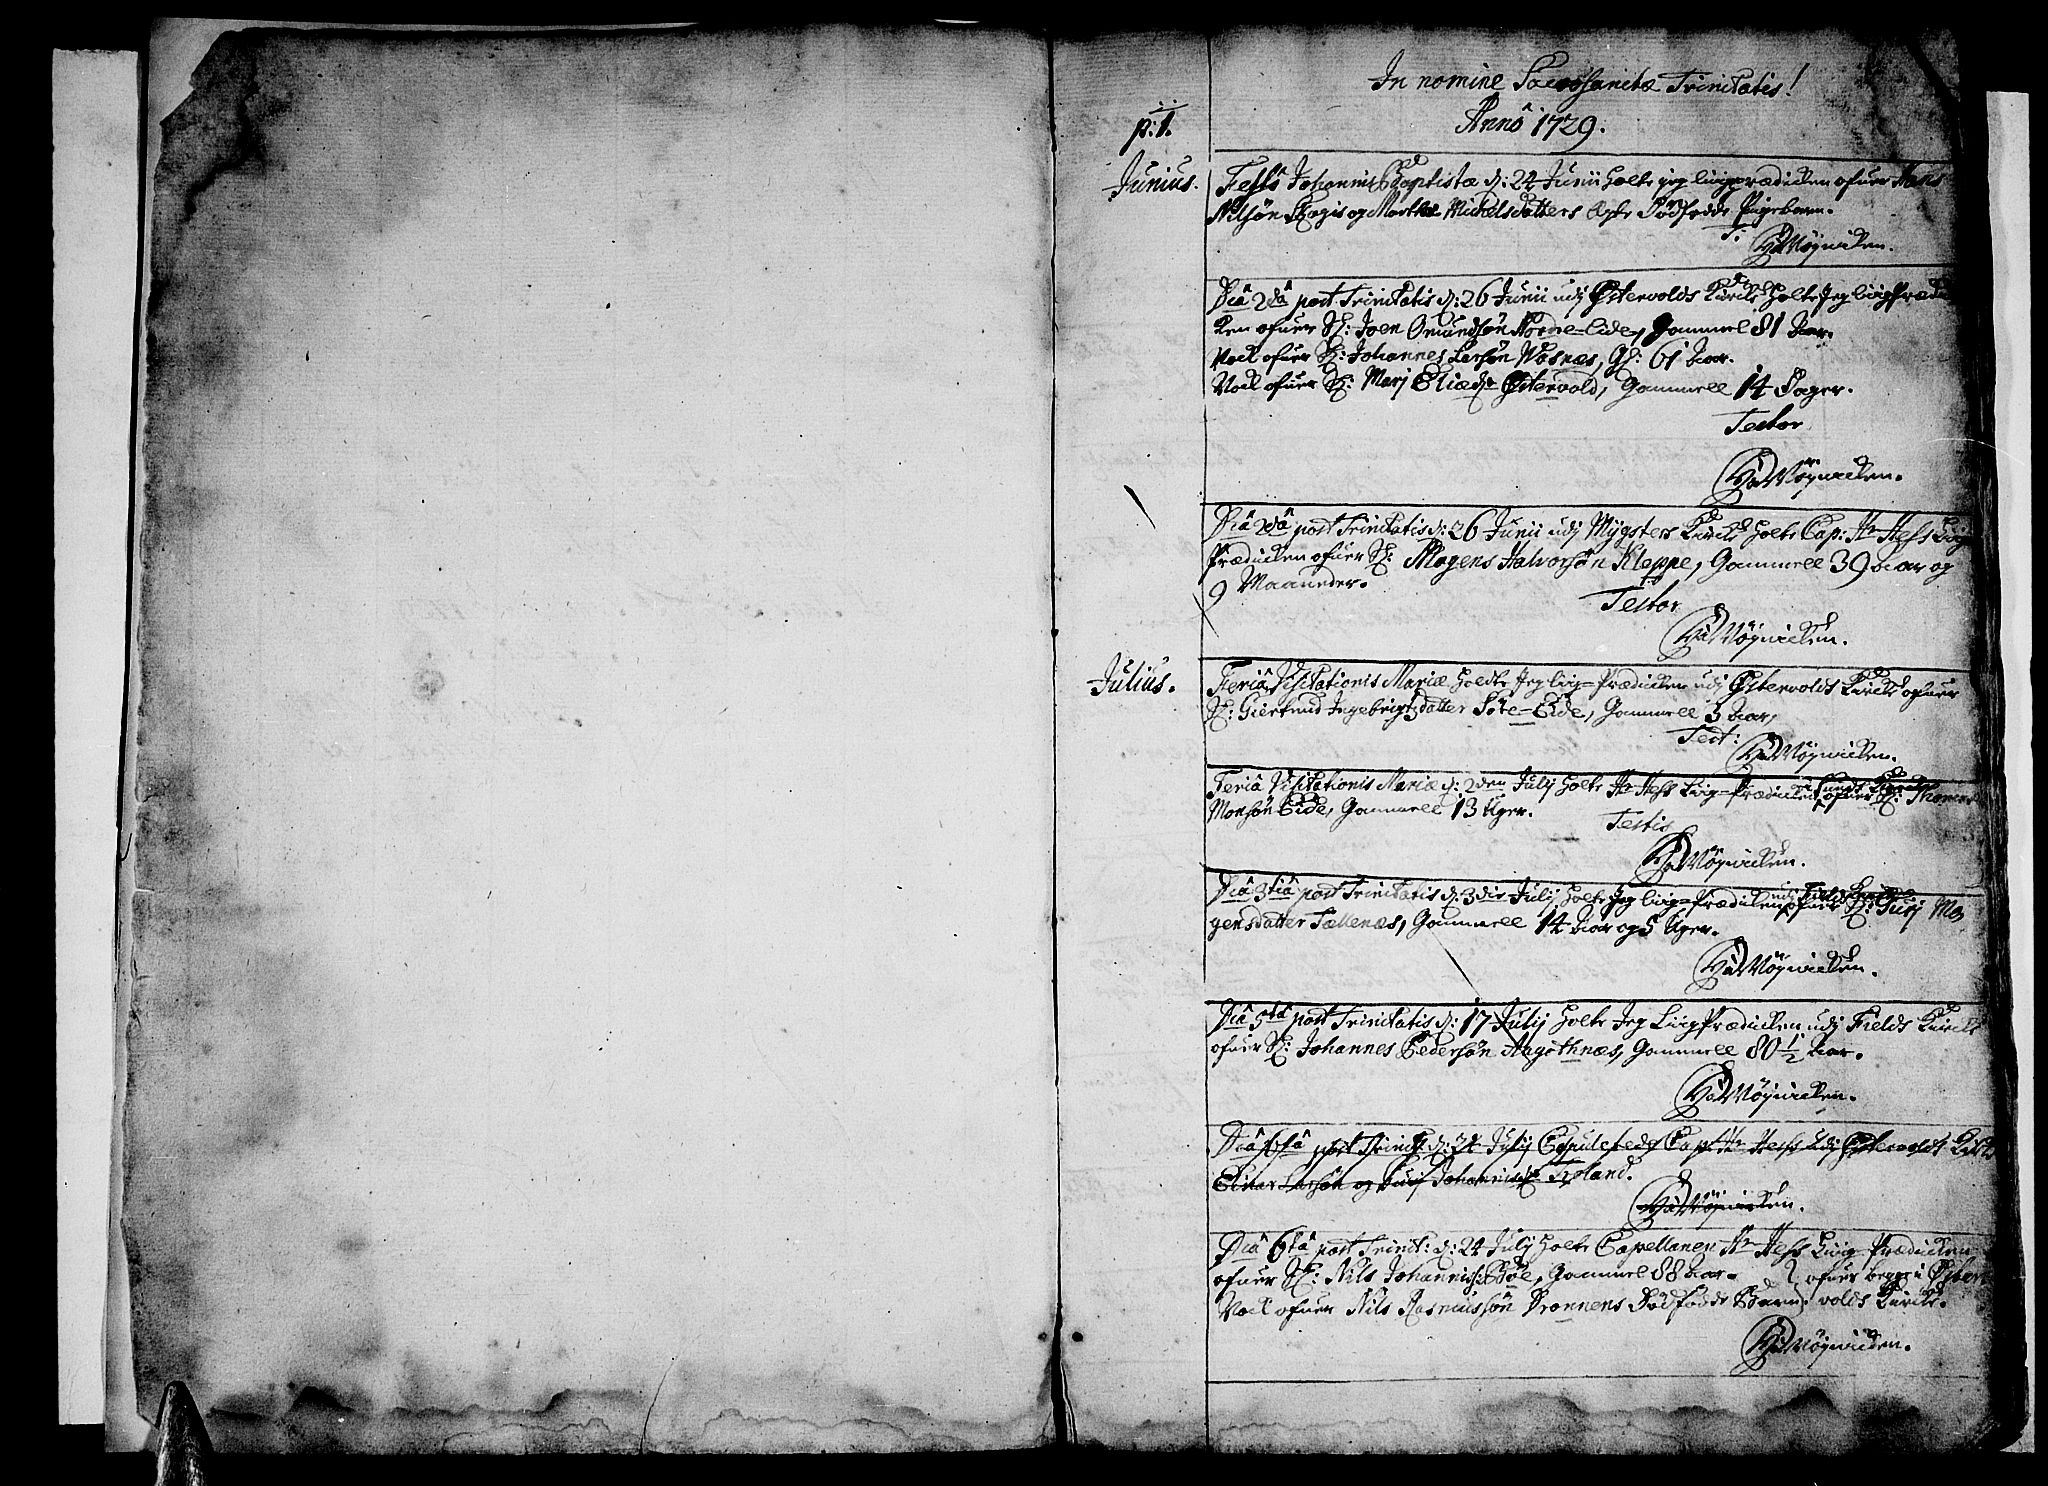 In nomine Sacrosanctæ Trinitatis!
p: 1.
Annô 1729.
Junius.
Festô Johannis Baptistæ d: 24 Junii holte jeg liigprædicken ofuer Hans
Nilsøn og Marthe Michelsdatters ægte Dødfødde Pigebarn.
T.
HaMøÿnichen.
Diâ 2dâ post Trinitatis d: 26 Junii udj Østervolds Kircke holte Jeg liigPrædi
ken ofuer Sl: Joen Omundsøn Nordre-Eide, Gammel 81 Aar.
Nock ofuer Sl: Johannes Larsøn Vosnæs, Gl: 61 Aar.
Nock ofuer Sl: Marj Eliædr Østervold, Gammell 14 Dager.
Testor
HaMøÿnichen.
Diâ 2dâ post Trinitatis d: 26 Junii udj Mÿgsters Kircke holte Cap: Hr Hess Liig
Prædicken ofuer Sl: Mogens Halvorsøn Kleppe, Gammell 39 Aar og
9 Maaneder.
Testor
HaMøÿnichen.
Julius.
Feriâ Visitationis Mariæ holdte Jeg liig-Prædicken udj Østervolds Kircke ofuer
Sl: Giertrud Ingebrigtsdatter Søre-Eide, Gammell 3 Aar,
Test:
HaMøÿnichen.
Feriâ Visitationis Mariæ d: 2den Julij holte Hr Hess Liig-Prædicken i Sunds Kircke ofuer Sl: Thomes
Monsøn Eide, Gammell 13 Uger.
Testis
HaMøÿnichen.
Diâ 3tiâ post Trinitatis d: 3die Julij holte Jeg liig-Prædicken udj Fields Kircke ofuer Sl: Gurj Mo
gensdatter Tellenæs, Gammell 14 Aar og 5 Uger.
HaMøÿnichen.
Diâ 5tâ post Trinitatis d: 17 Julij holte Jeg LiigPrædicken udj Fields Kircke
ofuer Sl: Johannes Pedersøn Angothnæs, Gammell 80 1/2 Aar.
HaMøÿnichen.
Diâ 6tâ post Trinit: d: 24 Julij Copulerede Cap: Hr Hess udj Østervolds Kircke
Elnar Larsøn og Gurj Johannisdr
HaMøÿnichen.
Diâ 6tâ post Trinit: d: 24 Julij holte Capellanen Hr Hess Liig-Prædicken
ofuer Sl: Nils Johannis: Bøe, Gammel 88 Aar. ofuer begge i Øster
Nock ofuer Nils Rasmussøn Drønnens Dødfødde Barn. volds Kircke.
HaMøÿnichen.